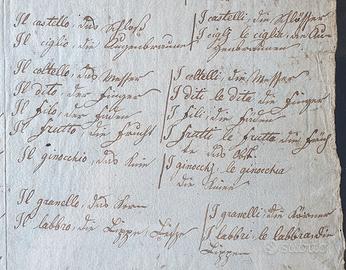 Il castello, das Schloß
Il ciglio, die Augenbraune
Il coltello, das Messer
Il dito, der Finger
Il filo, der Faden
Il frutto, die Frucht
Il ginocchio, das Knie
Il granello, das Korn
Il labbro, die Lippe, Lippe
I castelli, die Schlösser
I cigli, le ciglia, die Au
genbraunen.
I coltelli, die Messer
I diti, le dita, die Finger
I fili, die Faden
I frutti, le frutta, die Früch
te das Obst.
I ginocchi, le ginocchia
die Kniee
I granelli, die Körner
I labbri, le labbra die
Lippen